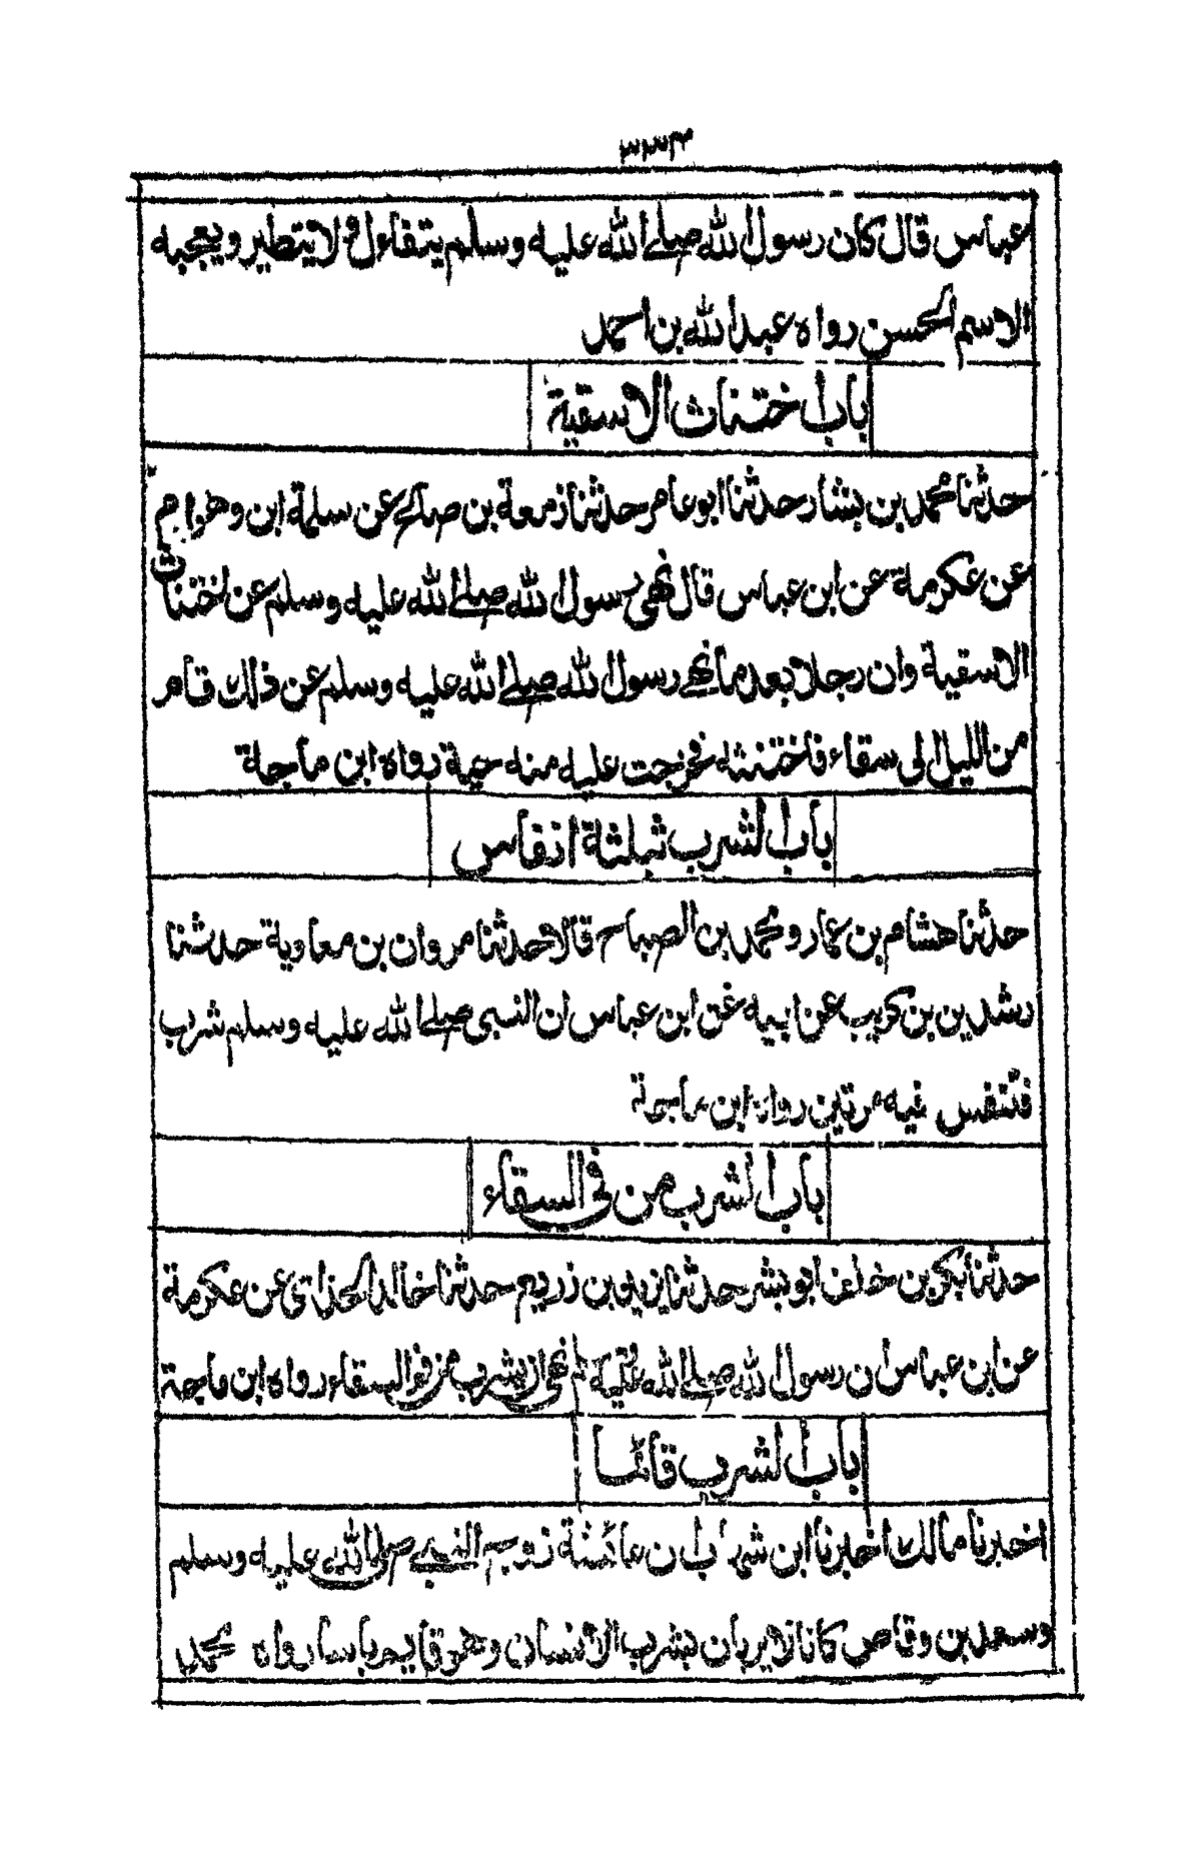 ٣٣٣
عباس قال كان رسول الله صلے الله عليه وسلم يتفاءل و لا يتطير ويعجبه
الاسم الحسن رواه عبد الله بن احمد
باب اختناث الاسقية
حدثنا محمد بن بشار حدثنا ابو عامر حدثنا زمعة بن صالح عن سلمة ابن وهرام
عن عكرمة عن ابن عباس قال نهى رسول الله صلے الله عليه وسلم عن اختناث
الاسقية وان رجلا بعد ما نهے رسول الله صلے الله عليه وسلم عن ذالك قام
من الليل الى سقاء فاختنثه فخرجت عليه منه حية رواه ابن ماجة
باب الشرب بثلثة انفاس
حدثنا هشام بن عمار و محمد بن الصباح قالا حدثنا مروان بن معاوية حدثنا
رشدين بن كريب عن ابيه عن ابن عباس ان النبى صلے الله عليه وسلم شرب
فتنفس فيه مرتين رواه ابن ماجة
باب الشرب من فى السقاء
حدثنا بكر بن خلف ابو بشر حدثنا يزيد بن زريع حدثنا خالد الحذائى عن عكرمة
عن ابن عباس ان رسول الله صلے الله عليه نهى ان يشرب من فو السقاء رواه ابن ماجة
باب الشرب قائما
اخبرنا مالك اخبرنا ابن شهاب ان عائشة زوج النبے صلى الله عليه وسلم
وسعد بن وقاص كانا لا يريان بشرب الانسان وهو قايم باسا رواه محمد